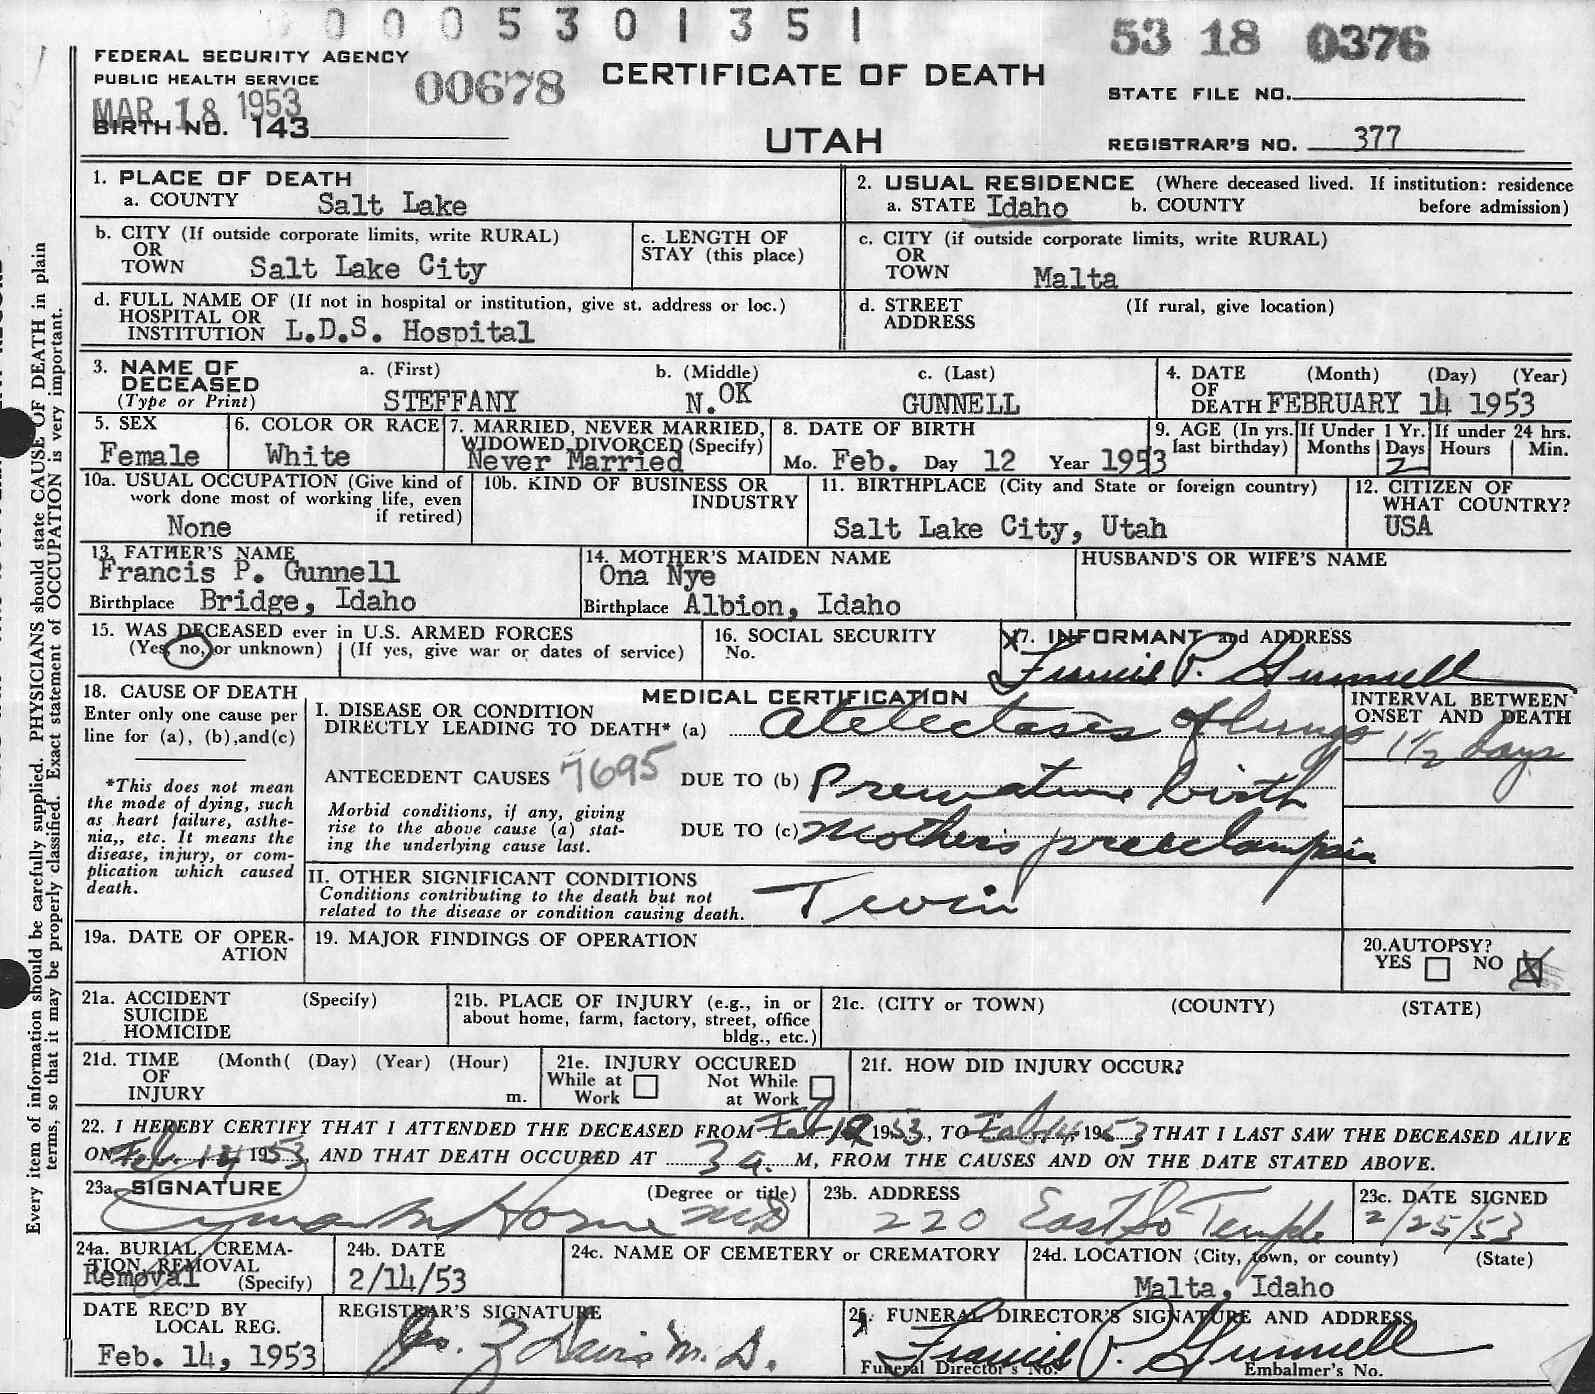 0 0 0 5 3 0 1 3 5 1
53 18 0376
FEDERAL SECURITY AGENCY
PUBLIC HEALTH SERVICE
00678
CERTIFICATE OF DEATH
STATE FILE NO.
MAR 18 1953
BIRTH NO. 143
UTAH
REGISTRAR'S NO. 377
1. PLACE OF DEATH
a. COUNTY Salt Lake
2. USUAL RESIDENCE (Where deceased lived. If institution: residence before admission)
a. STATE Idaho b. COUNTY
b. CITY (If outside corporate limits, write RURAL)
OR
TOWN Salt Lake City
c. LENGTH OF
STAY (this place)
c. CITY (if outside corporate limits, write RURAL)
OR
TOWN Malta
d. FULL NAME OF (If not in hospital or institution, give st. address or loc.)
HOSPITAL OR
INSTITUTION L.D.S. Hospital
d. STREET (If rural, give location)
ADDRESS
3. NAME OF
DECEASED
(Type or Print)
a. (First) b. (Middle) c. (Last)
STEFFANY N.OK GUNNELL
4. DATE (Month) (Day) (Year)
OF
DEATH FEBRUARY 14 1953
5. SEX
Female
6. COLOR OR RACE
White
7. MARRIED, NEVER MARRIED,
WIDOWED, DIVORCED (Specify)
Never Married
8. DATE OF BIRTH
Mo. Feb. Day 12 Year 1953
9. AGE (In yrs.
last birthday)
If Under 1 Yr.
Months Days
2
If under 24 hrs.
Hours Min.
10a. USUAL OCCUPATION (Give kind of
work done most of working life, even
if retired)
None
10b. KIND OF BUSINESS OR
INDUSTRY
11. BIRTHPLACE (City and State or foreign country)
Salt Lake City, Utah
12. CITIZEN OF
WHAT COUNTRY?
USA
13. FATHER'S NAME
Francis P. Gunnell
Birthplace Bridge, Idaho
14. MOTHER'S MAIDEN NAME
Ona Nye
Birthplace Albion, Idaho
HUSBAND'S OR WIFE'S NAME
15. WAS DECEASED ever in U.S. ARMED FORCES
(Yes, no, or unknown) (If yes, give war or dates of service)
16. SOCIAL SECURITY
No.
X 17. INFORMANT and ADDRESS
Francis P. Gunnell
18. CAUSE OF DEATH
Enter only one cause per
line for (a), (b),and(c)
*This does not mean
the mode of dying, such
as heart failure, asthe-
nia,, etc. It means the
disease, injury, or com-
plication which caused
death.
MEDICAL CERTIFICATION
I. DISEASE OR CONDITION
DIRECTLY LEADING TO DEATH* (a) Atelectasis of lungs
INTERVAL BETWEEN
ONSET AND DEATH
1 1/2 days
ANTECEDENT CAUSES 7695 DUE TO (b) Premature birth
Morbid conditions, if any, giving
rise to the above cause (a) stat-
ing the underlying cause last.
DUE TO (c) Mother's preeclampsia
II. OTHER SIGNIFICANT CONDITIONS
Conditions contributing to the death but not
related to the disease or condition causing death.
Twin
19a. DATE OF OPER-
ATION
19. MAJOR FINDINGS OF OPERATION
20.AUTOPSY?
YES NO X
21a. ACCIDENT (Specify)
SUICIDE
HOMICIDE
21b. PLACE OF INJURY (e.g., in or
about home, farm, factory, street, office
bldg., etc.)
21c. (CITY or TOWN) (COUNTY) (STATE)
21d. TIME (Month( (Day) (Year) (Hour)
OF
INJURY m.
21e. INJURY OCCURED
While at Work Not While at Work
21f. HOW DID INJURY OCCUR?
22. I HEREBY CERTIFY THAT I ATTENDED THE DECEASED FROM Feb 12 1953, TO Feb 14, 1953, THAT I LAST SAW THE DECEASED ALIVE
ON Feb. 14 1953, AND THAT DEATH OCCURED AT 3 a. M, FROM THE CAUSES AND ON THE DATE STATED ABOVE.
23a. SIGNATURE (Degree or title)
Horne MD
23b. ADDRESS
220 East So Temple
23c. DATE SIGNED
2/25/53
24a. BURIAL, CREMA-
TION, REMOVAL
Removal (Specify)
24b. DATE
2/14/53
24c. NAME OF CEMETERY or CREMATORY
24d. LOCATION (City, town, or county) (State)
Malta, Idaho
DATE REC'D BY
LOCAL REG.
Feb. 14, 1953
REGISTRAR'S SIGNATURE
Davis M.D.
25. FUNERAL DIRECTOR'S SIGNATURE AND ADDRESS
Francis P. Gunnell
Funeral Director's No. Embalmer's No.
Every item of information should be carefully supplied. PHYSICIANS should state CAUSE OF DEATH in plain
terms, so that it may be properly classified. Exact statement of OCCUPATION is very important.